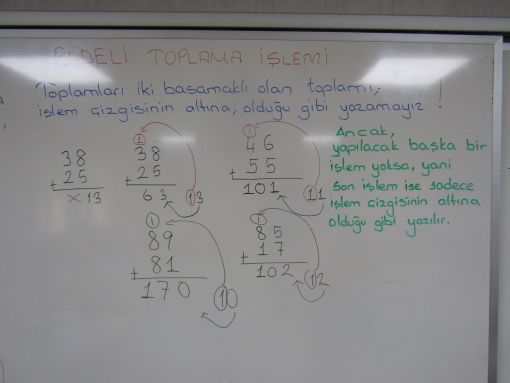 ELDELİ TOPLAMA İŞLEMİ
Toplamları iki basamaklı olan toplamı,
işlem çizgisinin altına, olduğu gibi yazamayız !
Ancak,
yapılacak başka bir
işlem yoksa, yani
son işlem ise sadece
işlem çizgisinin altına
olduğu gibi yazılır.
38
25
+
x 13
1
38
25
+
63 13
1
46
55
+
101 11
1
89
81
+
170 10
1
85
17
+
102 12